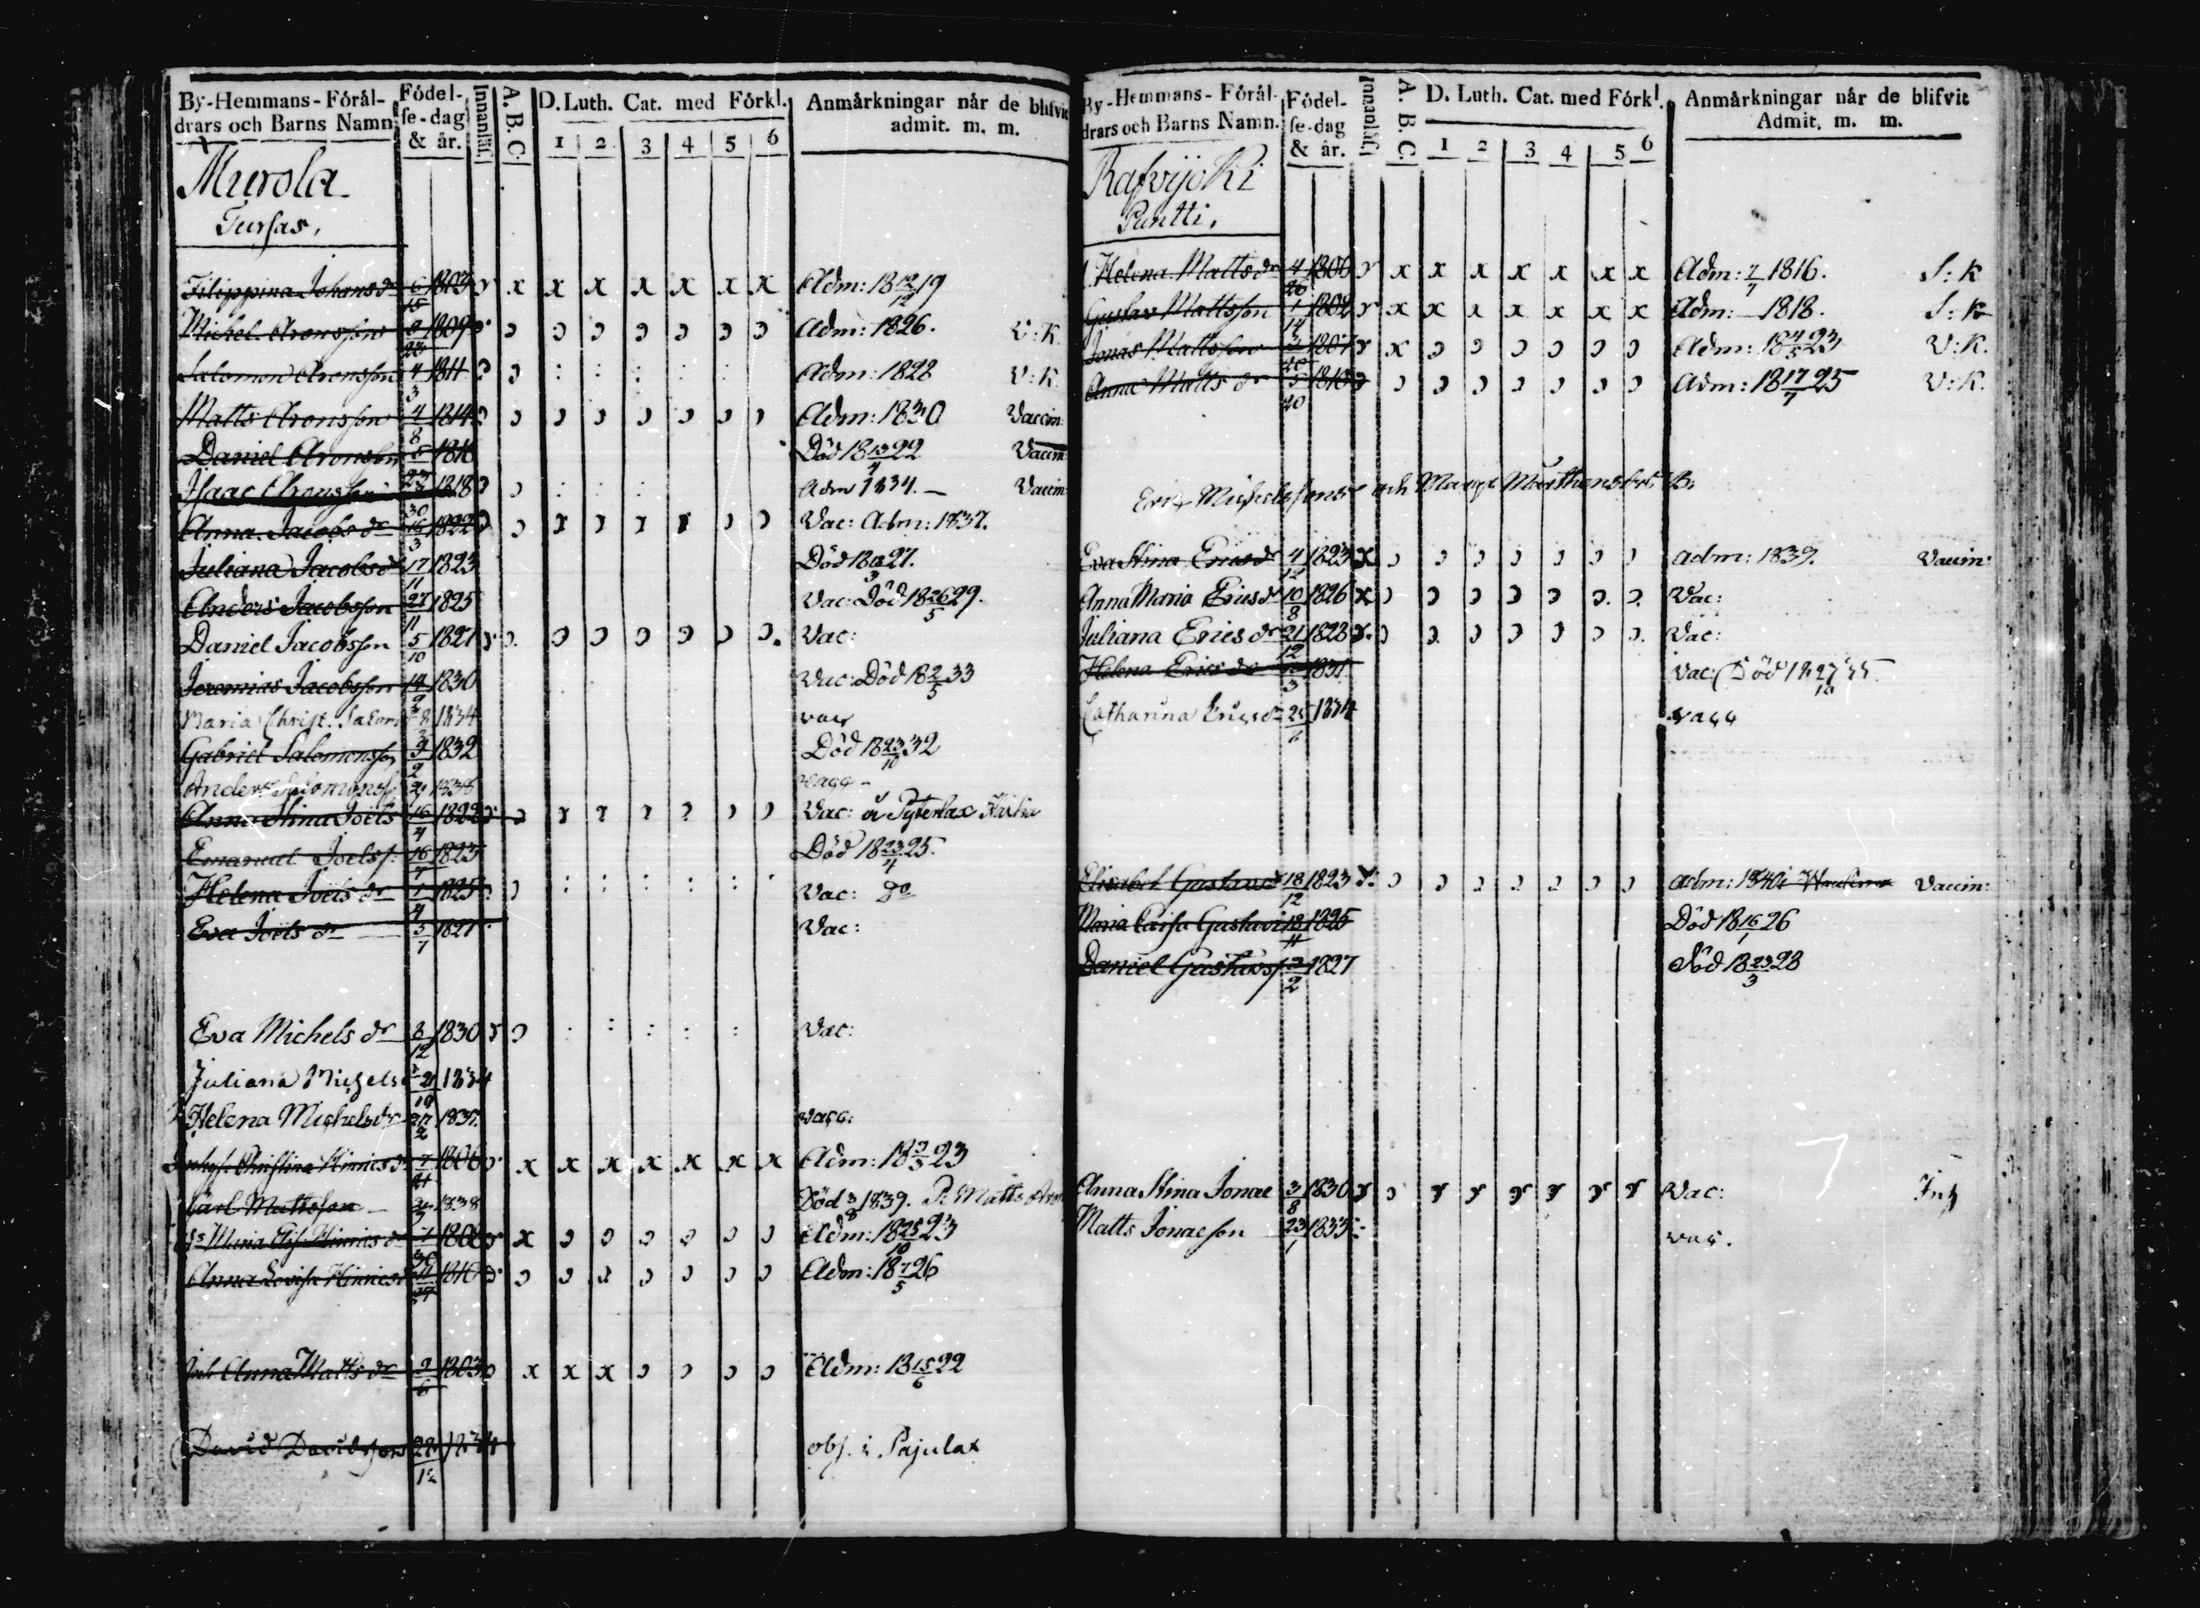 By-Hemmans-Förål-
drars och Barns Namn
Födel-
se-dag
& år.
Innanläs.
A. B. C.
D. Luth. Cat. med Förkl.
1 2 3 4 5 6
Anmärkningar når de blifvit
admit. m. m.
Murola
Tursas,
Filippina Johans dr 6/15 1803 x x x x x x x Adm: 18 12/12 19
Michel Aronsson 1809 Adm: 1826. V:K.
Salomon Aronsson 4/3 1811 Adm: 1828 V:K.
Matts Aronsson 4/8 1814 Adm: 1830 Vaccin
Daniel Aronsson 1816 Död 18 13/4 22 Vaccin
Isaac Aronsson 1818 Adm 1834. Vaccin
Anna Jacobs dr 16/3 1822 Vac: Adm: 1837.
Juliana Jacobs dr 17/11 1823 Död 18 27.
Anders Jacobsson 27/11 1825 Vac: Död 18 26/5 29.
Daniel Jacobsson 5/10 1827 Vac:
Jeremias Jacobsson 14 1830 Vac: Död 18 2/5 33
Maria Christ. Salom 8 1834 vac
Gabriel Salomonsson 9/9 1832 Död 18 23/10 32
Anders Salomonss 1838 vacc
Anna Stina Joels 16/4 1822 Vac: Pyterlax
Emanuel Joelss. 16/7 1823 Död 18 23/4 25.
Helena Joels dr 1/4 1825 Vac: Do
Eva Joels dr 5/7 1827 Vac:
Eva Michels dr 8/12 1830 Vac:
Juliana Michels 21/10 1834
Helena Michelsdr 27/2 1837. vacc:
Christina Hinrics dr 7/21 1806 x x x x x x x Adm: 18 3/3 23
Carl Mattsson 1838 Död 3/8 1839. Matts
Maria Elis. Hinrics dr 1808 x Adm: 18 25/10 23
Anna Lovisa Hinrics 1810 Adm: 18 7/5 26
Anna Matts dr 2/6 1803 x x x Adm: 18 15/6 22
David Davidsson 22/12 1834 obs. i. Pajulax
By-Hemmans-Förål-
drars och Barns Namn.
Födel-
se-dag
& år.
Innanläs.
A. B. C.
D. Luth. Cat. med Förkl.
1 2 3 4 5 6
Anmärkningar når de blifvit
Admit. m. m.
Rafvijoki
Puntti,
Helena Matts dr 4/20 1800 x x x x x x x Adm: 7/7 1816. S:K
Gustav Mattsson 1/14 1802 x x x x x x x Adm: 1818. S:K
Jonas Mattsson 1807 x Adm: 18 4/5 23 V:K.
Anna Matts dr 5/20 1810 Adm: 18 17/7 25 V:K.
Eric Michelssons och Marg. B:
Eva Stina Erics dr 4/12 1823 Adm: 1839. Vaccin:
Anna Maria Erics dr 10/8 1826 Vac:
Juliana Erics dr 21/12 1828 Vac:
Helena Erics dr 1831 Vac: Död 18 27/10 35
Catharina Erics dr 25/6 1834 vacc
Elisabet Gustavs 18/12 1823 Adm: 1840 Vaccin:
Maria Caisa Gustavi 18/11 1825 Död 18 16/1 26
Daniel Gustavss 3/2 1827 Död 18 23/3 28
Anna Stina Jonae 3/8 1830 Vac: Inh
Matts Jonaeson 23/1 1833 vac.